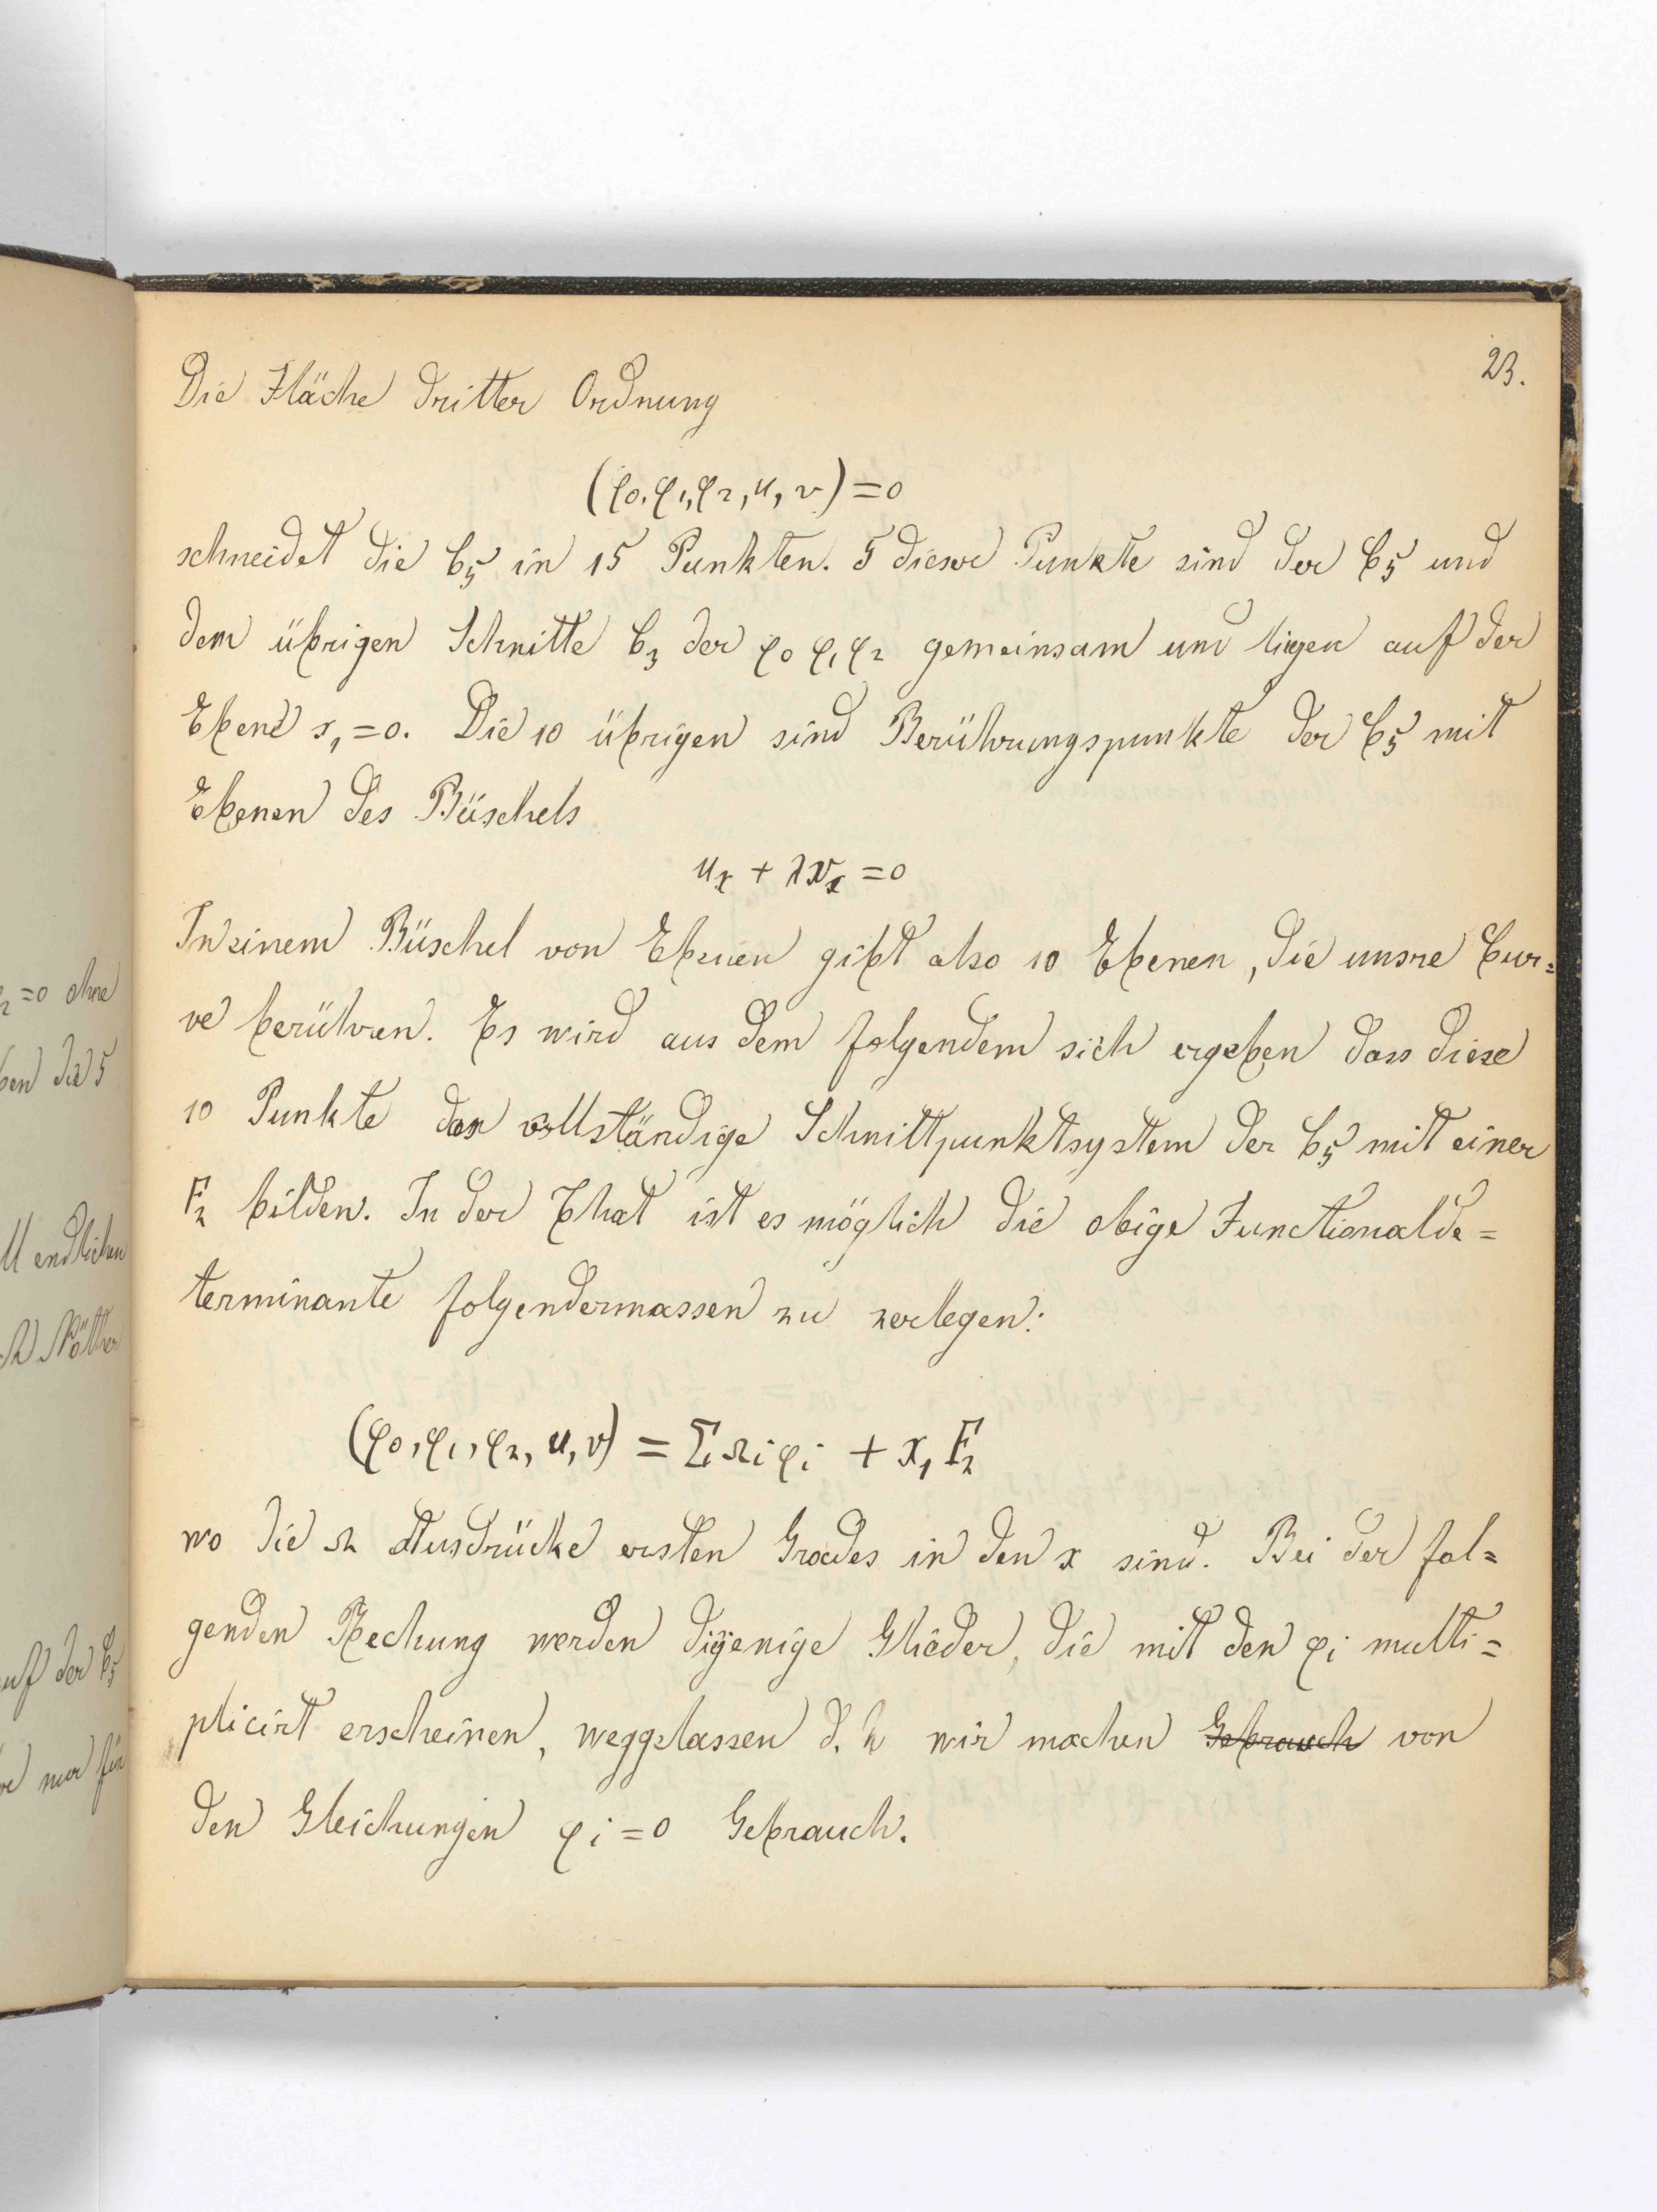 23.
Die Fläche dritter Ordnung
(φ0, φ1, φ2, u, v) = 0
schneidet die C5 in 15 Punkten. 5 dieser Punkte sind der C5 und
dem übrigen Schnitte C3 der φ0 φ1 φ2 gemeinsam und liegen auf der
Ebene x1 = 0. Die 10 übrigen sind Berührungspunkte der C5 mit
Ebenen des Büschels
ux + λvx = 0
In einem Büschel von Ebenen gibt also 10 Ebenen, die unsre Cur=
ve berühren. Es wird aus dem folgendem sich ergeben dass diese
10 Punkte das vollständige Schnittpunktsystem der C5 mit einer
F2 bilden. In der That ist es möglich die obige Functionalde=
terminante folgendermassen zu zerlegen:
(φ0, φ1, φ2, u, v) = Σ Ωi φi + x1 F2
wo die Ω Ausdrücke ersten Grades in den x sind. Bei der fol=
genden Rechung werden dijenige Glieder, die mit den φi multi=
plicirt erscheinen, weggelassen d. h wir machen Gebrauch von
den Gleichungen φi = 0 Gebrauch.
2 = 0 ohne
ben die 5
endlichen
Nöther
auf der C5
nur für